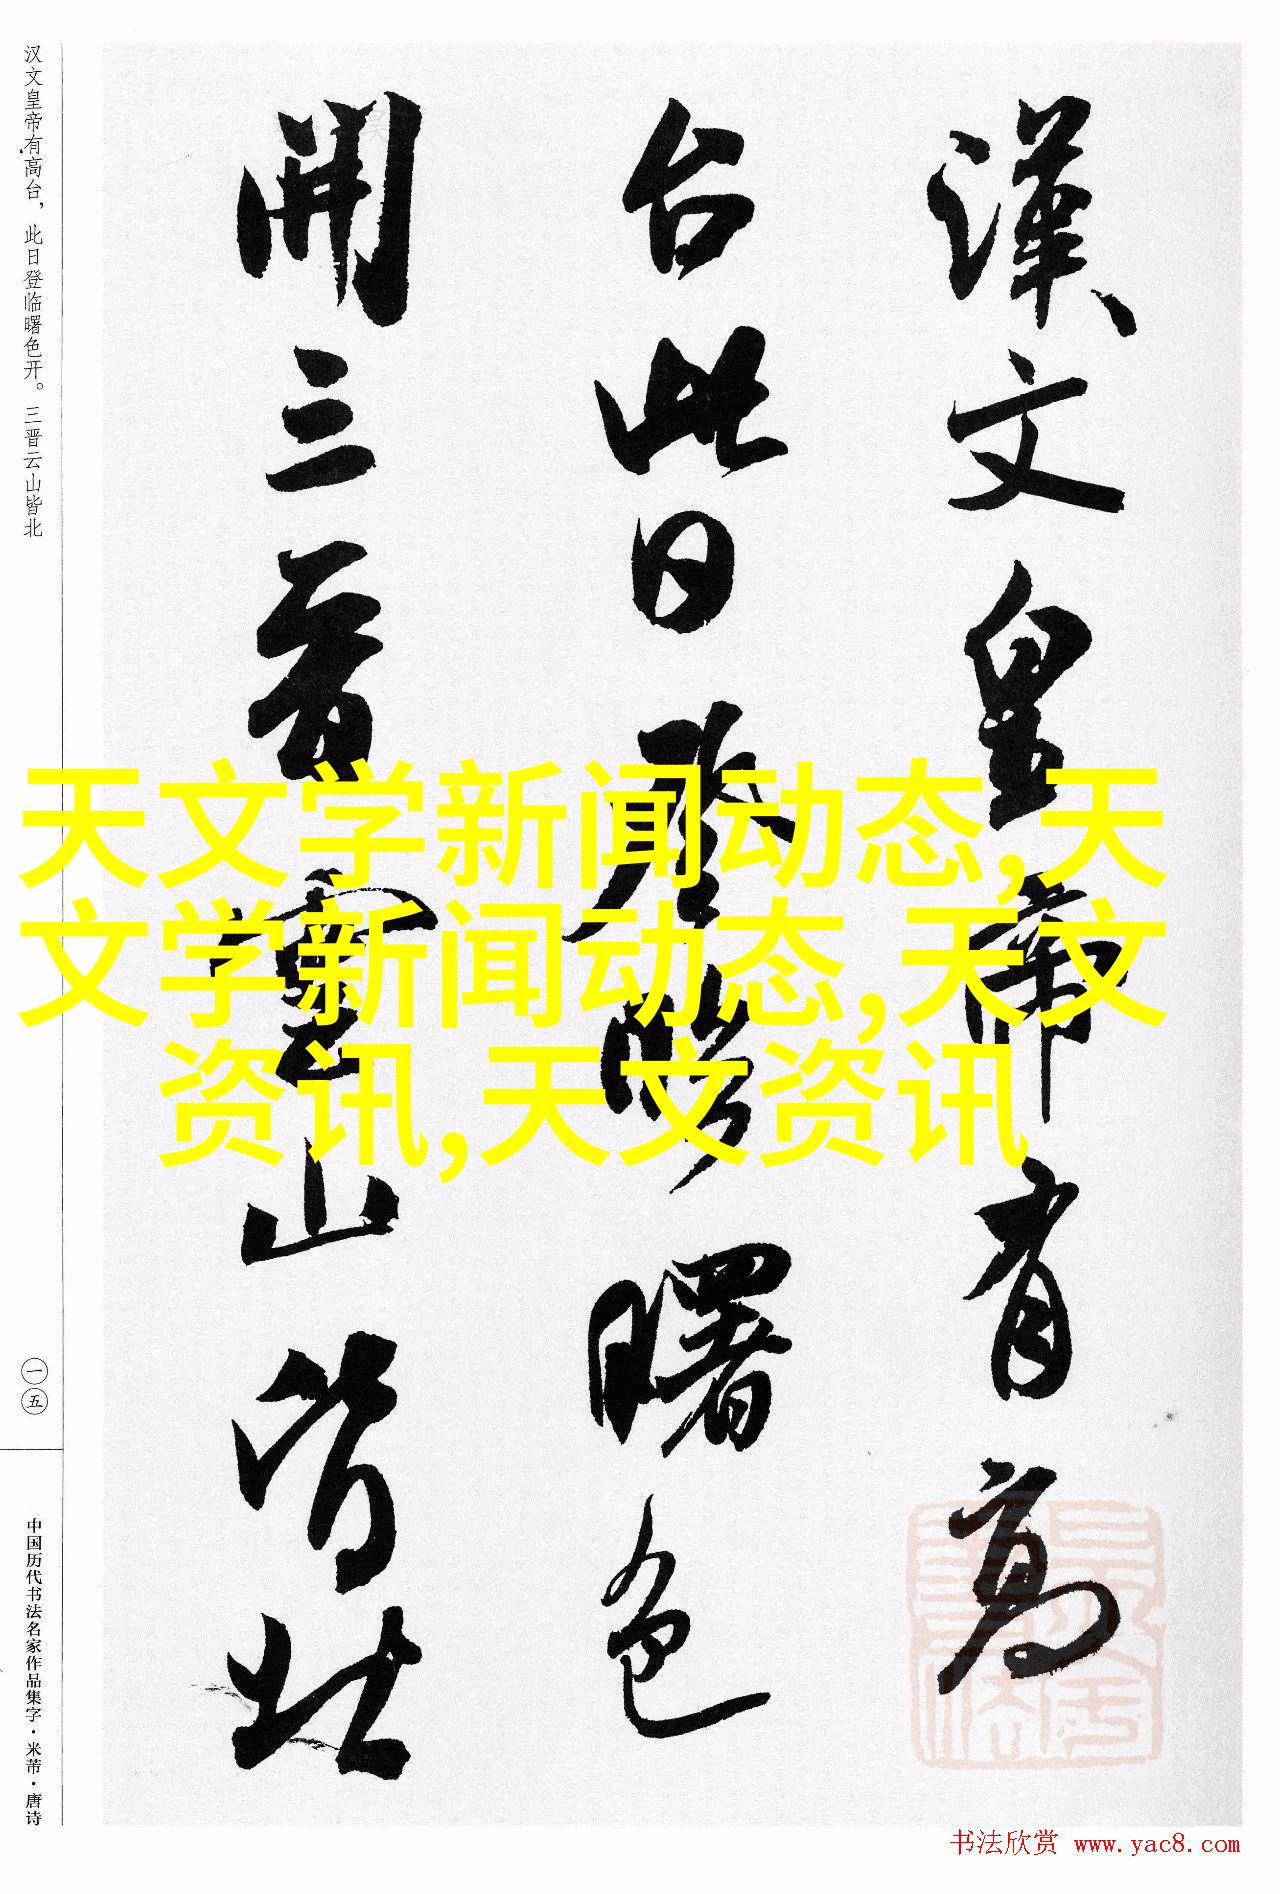 漢文皇帝有高
台此日登臨曙色
開三晉雲山皆北
汉文皇帝有高台，此日登临曙色开。三晋云山皆北
一五
中国历代书法名家作品集字·米芾·唐诗
天文学新闻动态,天
文学新闻动态,天文
资讯,天文资讯
书法欣赏 www.yac8.com